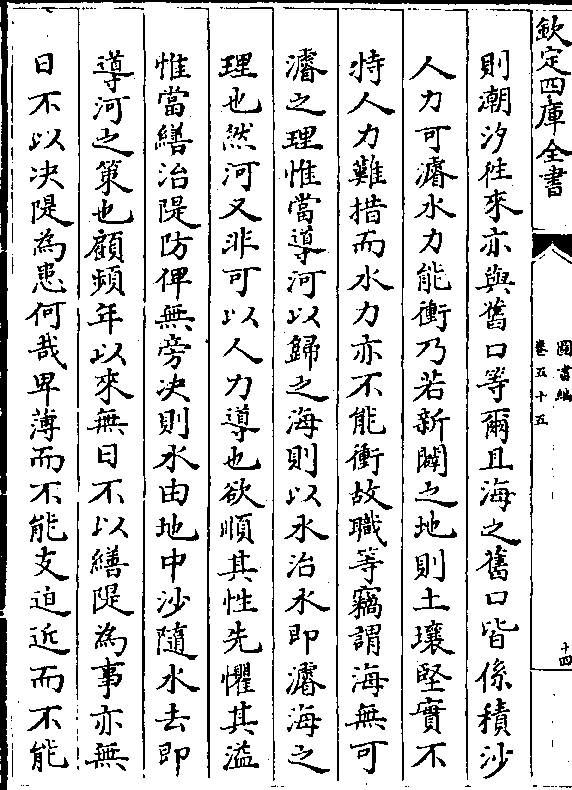 欽定四庫全書
圖書編
卷五十五
十四
則潮汐徃來亦與舊口等爾且海之舊口皆係積沙
人力可濬水力能衝乃若新闢之地則土壤堅實不
特人力難措而水力亦不能衝故職等竊謂海無可
濬之理惟當導河以歸之海則以水治水即濬海之
理也然河又非可以人力導也欲順其性先懼其溢
惟當繕治隄防俾無旁决則水由地中沙隨水去即
導河之策也顧頻年以來無日不以繕隄為事亦無
日不以决隄為患何哉卑薄而不能支迫近而不能